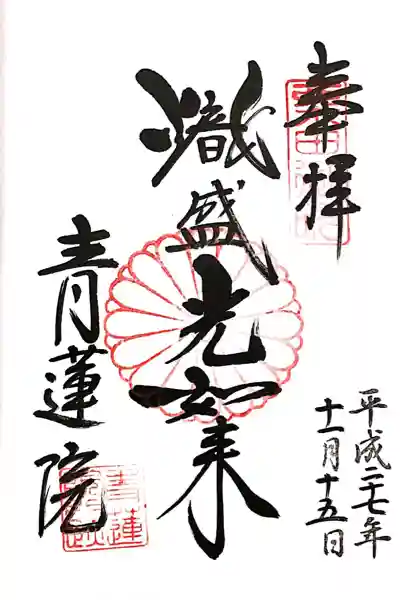 奉拝
平成二十七年
十一月十五日
熾盛光如来
青蓮院